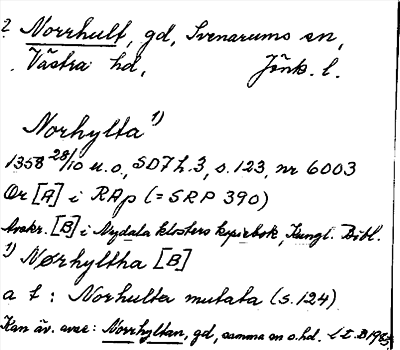 ? Norrhult, gd, Svenarums sn,
Västra hd, Jönk. l.
Norhylta 1)
1358 28/10 u.o., SD 7 h. 3, s. 123, nr 6003
Or [A] i RAp (= SRP 390)
Avskr. [B] i Nydala klosters kopiebok, Kungl. Bibl.
1) Nørhyltha [B]
a t : Norhulta mutata (s. 124)
Kan äv. avse: Norrhyltan, gd, samma sn o. hd.